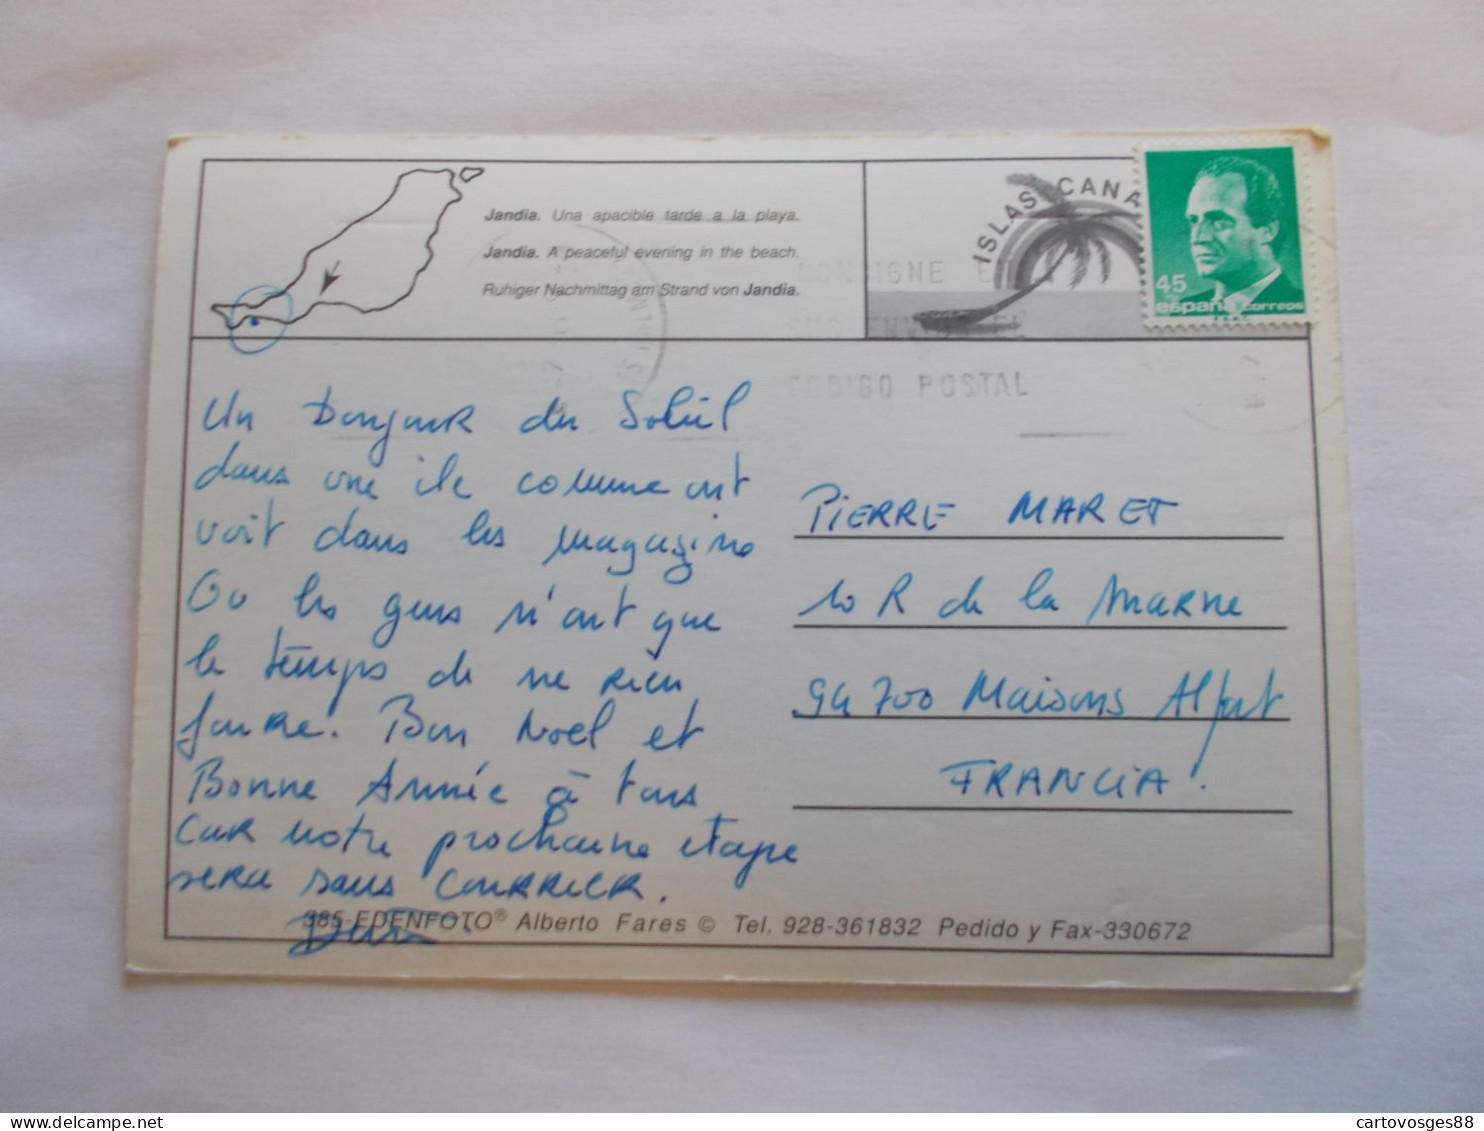 Jandia. Una apacible tarde a la playa.
Jandia. A peaceful evening in the beach.
Ruhiger Nachmittag am Strand von Jandia.
ISLAS CANA
45
españa correos
CONSIGNE E
CODIGO POSTAL
Un Bonjour du Soleil
dans une ile comme ont
voit dans les magazine
Ou les gens n'ont que
le temps de ne rien
faire. Bon Noel et
Bonne Année à tous
Car notre prochaine etape
sera sans courrier.
PIERRE MARET
10 R de la MARNE
94700 Maisons Alfort
FRANCIA!
385-EDENFOTO® Alberto Fares © Tel. 928-361832 Pedido y Fax-330672
cartovosges88